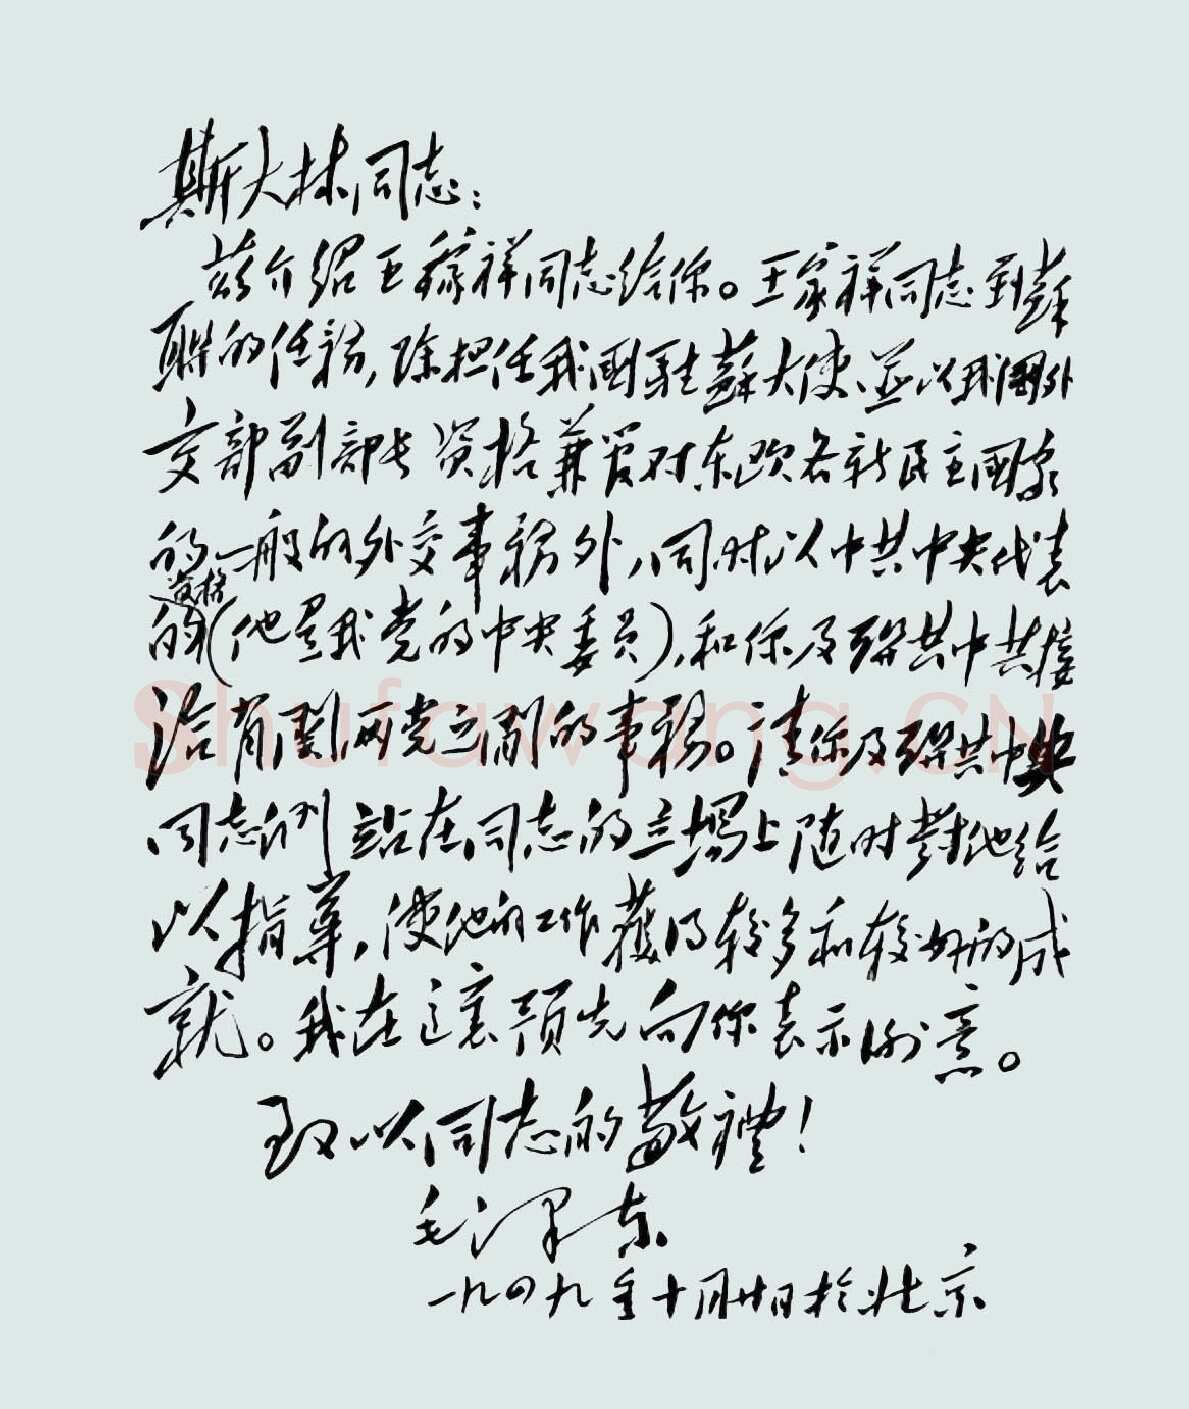 斯大林同志：
兹介绍王稼祥同志给你。王家祥同志到蘇
联的任務，除担任我國駐蘇大使、並以我國外
交部副部长资格兼管对东欧各新民主國家
的一般的外交事務外，同时以中共中央代表
资格
的(他是我党的中央委员)，和你及聯共中央接
洽有関两党之间的事務。请你及聯共中央
同志们站在同志的立場上随时對他给
以指导，使他的工作獲得较多和较好的成
就。我在這裏预先向你表示谢意。
致以同志的敬禮！
毛泽东
一九四九年十月廿日於北京
Shufawang.CN